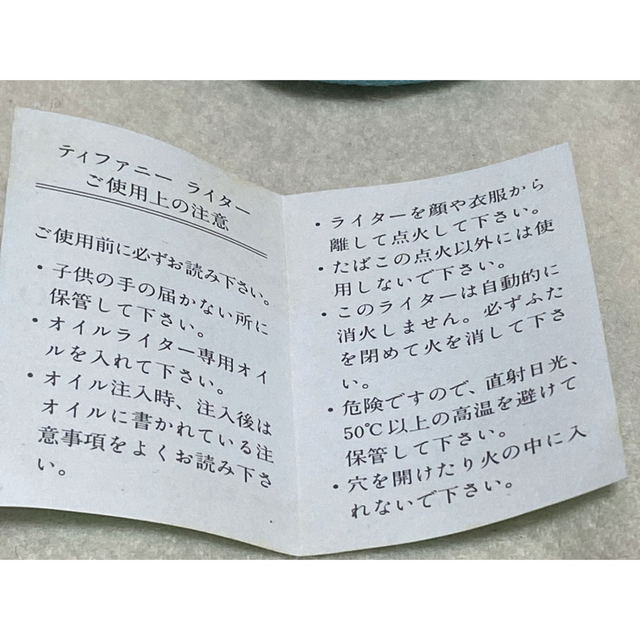 ティファニー ライター
ご使用上の注意
ご使用前に必ずお読み下さい。
・子供の手の届かない所に
保管して下さい。
・オイルライター専用オイ
ルを入れて下さい。
・オイル注入時、注入後は
オイルに書かれている注
意事項をよくお読み下さ
い。
・ライターを顔や衣服から
離して点火して下さい。
・たばこの点火以外には使
用しないで下さい。
・このライターは自動的に
消火しません。必ずふた
を閉めて火を消して下さ
い。
・危険ですので、直射日光、
50℃以上の高温を避けて
保管して下さい。
・穴を開けたり火の中に入
れないで下さい。